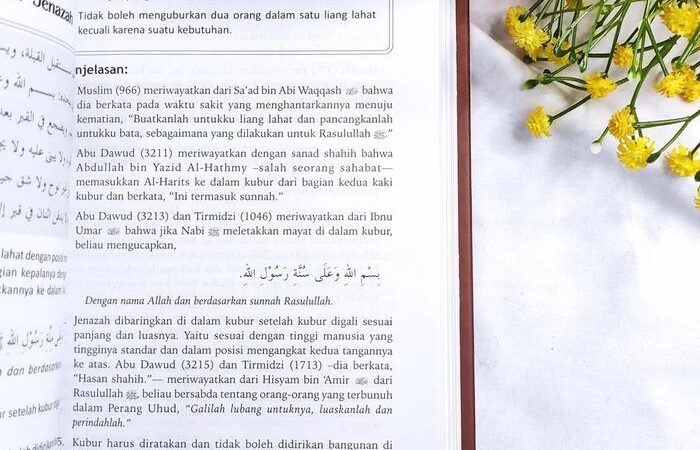 Jenazah
Tidak boleh menguburkan dua orang dalam satu liang lahat
kecuali karena suatu kebutuhan.
njelasan:
Muslim (966) meriwayatkan dari Sa'ad bin Abi Waqqash ﷺ bahwa
dia berkata pada waktu sakit yang menghantarkannya menuju
kematian, “Buatkanlah untukku liang lahat dan pancangkanlah
untukku bata, sebagaimana yang dilakukan untuk Rasulullah ﷺ.”
Abu Dawud (3211) meriwayatkan dengan sanad shahih bahwa
Abdullah bin Yazid Al-Hathmy –salah seorang sahabat—
memasukkan Al-Harits ke dalam kubur dari bagian kedua kaki
kubur dan berkata, “Ini termasuk sunnah.”
Abu Dawud (3213) dan Tirmidzi (1046) meriwayatkan dari Ibnu
Umar bahwa jika Nabi ﷺ meletakkan mayat di dalam kubur,
beliau mengucapkan,
بِسْمِ اللهِ وَعَلَى سُنَّةِ رَسُوْلِ اللهِ.
Dengan nama Allah dan berdasarkan sunnah Rasulullah.
Jenazah dibaringkan di dalam kubur setelah kubur digali sesuai
panjang dan luasnya. Yaitu sesuai dengan tinggi manusia yang
tingginya standar dan dalam posisi mengangkat kedua tangannya
ke atas. Abu Dawud (3215) dan Tirmidzi (1713) –dia berkata,
“Hasan shahih.”— meriwayatkan dari Hisyam bin ‘Amir dari
Rasulullah ﷺ, beliau bersabda tentang orang-orang yang terbunuh
dalam Perang Uhud, “Galilah lubang untuknya, luaskanlah dan
perindahlah.”
5. Kubur harus diratakan dan tidak boleh didirikan bangunan di
lahat dengan posisi
gian kepalanya
kannya ke dalam
dan berdasarkan
setelah kubur